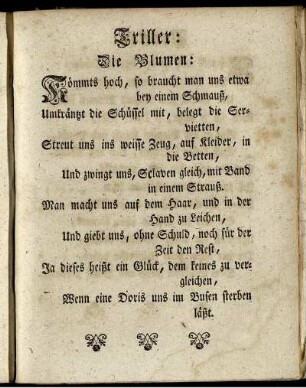 Triller:
Die Blumen:
Kömmts hoch, so braucht man uns etwa
bey einem Schmauß,
Umkräntzt die Schüssel mit, belegt die Ser-
vietten,
Streut uns ins weisse Zeug, auf Kleider, in
die Betten,
Und zwingt uns, Sclaven gleich, mit Band
in einem Strauß.
Man macht uns auf dem Haar, und in der
Hand zu Leichen,
Und giebt uns, ohne Schuld, noch für der
Zeit den Rest,
Ja dieses heißt ein Glück, dem keines zu ver-
gleichen,
Wenn eine Doris uns im Busen sterben
läßt.